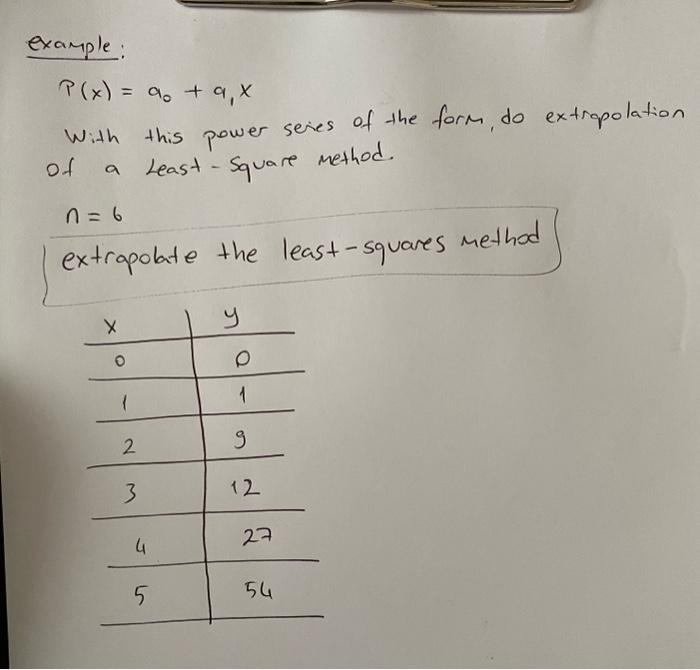 example:
P(x) = a₀ + a₁x
With this power series of the form, do extrapolation
of a Least-Square Method.
n = 6
extrapolate the least-squares method
x y
0 0
1 1
2 9
3 12
4 27
5 54